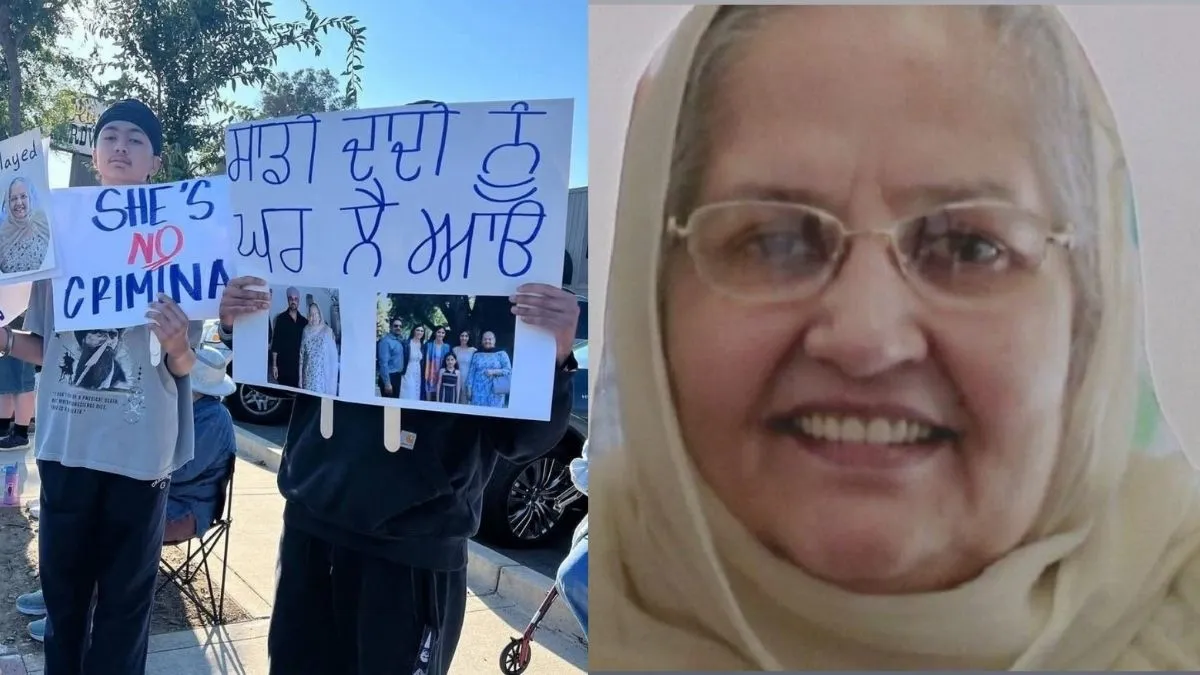 layed
SHE'S
NO
CRIMINA
ਸਾਡੀ ਦਾਦੀ ਨੂੰ
ਘਰ ਲੈ ਆਓ